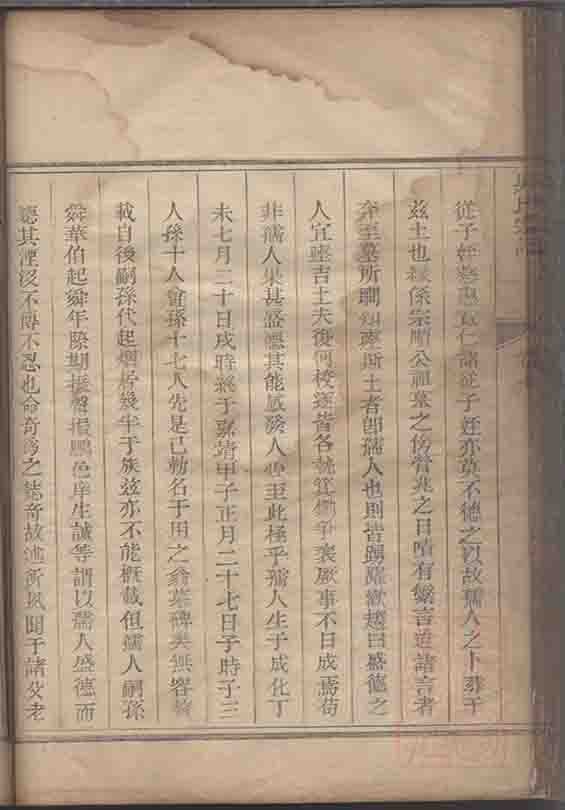 從子姪輩惠寬仁諸從子姪亦莫不德之以故孺人之卜葬于
茲土也緣係宗曠公祖墓之傍營兆之日嘖有繁言迨諸言者
奔至墓所聞知塟斯土者即孺人也則皆踴躍歡趨曰盛德之
人宜塟吉土夫復何校遂皆各執箕揪爭襄厥事不日成焉苟
非孺人果甚盛德其能感湥人心至此極乎孺人生于成化丁
未七月二十日戌時終于嘉靖甲子正月二十七日子時子三
人孫十人曾孫十七人先是已勒名于用之翁墓碑矣無容贅
載自後嗣孫代起烟居幾半于族茲亦不能概載但孺人嗣孫
舜華伯起舜年隙期振聲振鵬邑庠生誠等謂以孺人盛德而
聽其湮沒不傳不忍也命奇為之誌奇故述所夙聞于諸父老